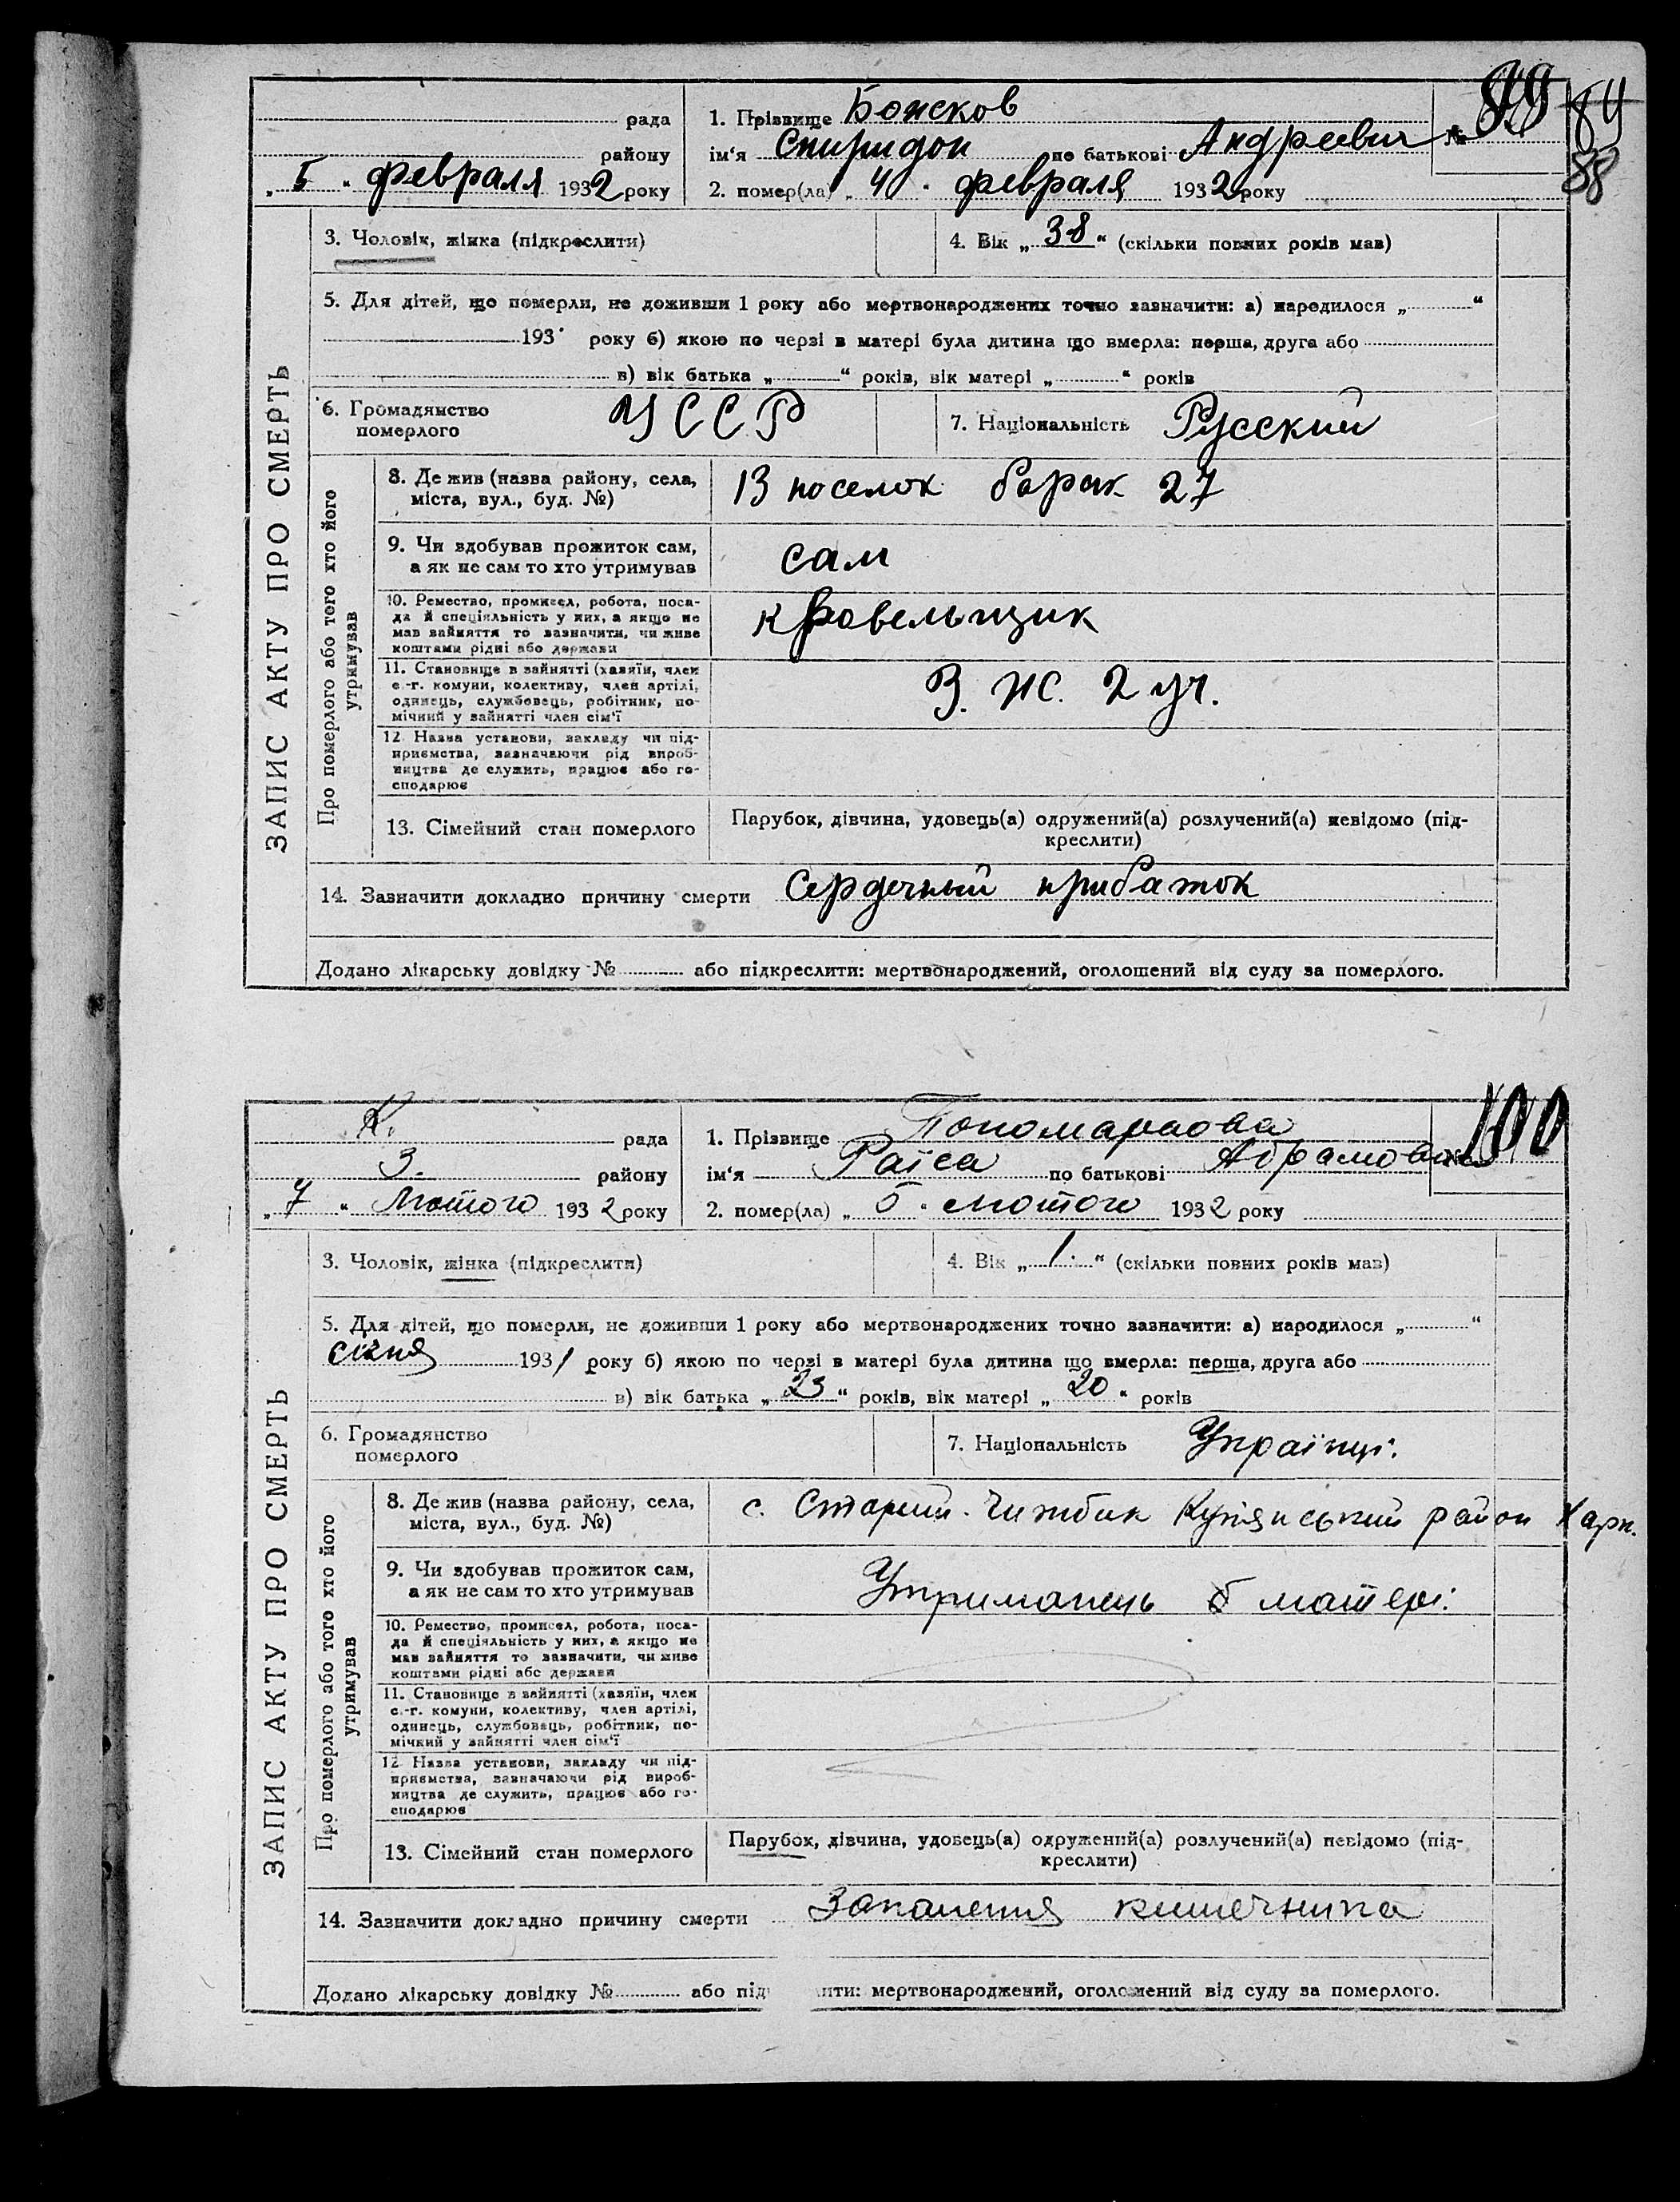 99 84
88
рада
району
„ 5 “ февраля 1932 року
1. Прізвище Божсков
ім'я Спиридон по батькові Андреевич №
2. помер(ла) „ 4 “ февраля 1932 року
ЗАПИС АКТУ ПРО СМЕРТЬ
3. Чоловік, жінка (підкреслити)
4. Вік „ 38 “ (скільки повних років мав)
5. Для дітей, що померли, не доживши 1 року або мертвонароджених точно зазначити: а) народилося „ “
193 року б) якою по черзі в матері була дитина що вмерла: перша, друга або
в) вік батька „ “ років, вік матері „ “ років
6. Громадянство
померлого
УССР
7. Національність Русский
Про померлого або того хто його
утримував
8. Де жив (назва району, села,
міста, вул., буд. №)
13 поселок барак 27
9. Чи здобував прожиток сам,
а як не сам то хто утримував
сам
10. Ремество, промисел, робота, поса-
да й спеціяльність у них, а якщо не
мав зайняття то зазначити, чи живе
коштами рідні або держави
кровельщик
11. Становище в зайнятті (хазяїн, член
с.-г. комуни, колективу, член артілі,
одинець, службовець, робітник, по-
мічний у зайнятті член сім'ї
З. Ж. 2 уч.
12. Назва установи, закладу чи під-
приємства, зазначаючи рід вироб-
ництва де служить, працює або го-
сподарює
13. Сімейний стан померлого
Парубок, дівчина, удовець(а) одружений(а) розлучений(а) невідомо (під-
креслити)
14. Зазначити докладно причину смерти Сердечный прибаток
Додано лікарську довідку № або підкреслити: мертвонароджений, оголошений від суду за померлого.
К. рада
3. району
„ 7 “ Лютого 1932 року
1. Прізвище Пономарьова
ім'я Раїса по батькові Абрамовна № 100
2. помер(ла) „ 5 “ лютого 1932 року
ЗАПИС АКТУ ПРО СМЕРТЬ
3. Чоловік, жінка (підкреслити)
4. Вік „ 1. “ (скільки повних років мав)
5. Для дітей, що померли, не доживши 1 року або мертвонароджених точно зазначити: а) народилося „ “
січня 1931 року б) якою по черзі в матері була дитина що вмерла: перша, друга або
в) вік батька „ 23 “ років, вік матері „ 20 “ років
6. Громадянство
померлого
7. Національність Українці.
Про померлого або того хто його
утримував
8. Де жив (назва району, села,
міста, вул., буд. №)
с. Старий. Куп'янський район Харк.
9. Чи здобував прожиток сам,
а як не сам то хто утримував
Утриманець б матері.
10. Ремество, промисел, робота, поса-
да й спеціяльність у них, а якщо не
мав зайняття то зазначити, чи живе
коштами рідні або держави
11. Становище в зайнятті (хазяїн, член
с.-г. комуни, колективу, член артілі,
одинець, службовець, робітник, по-
мічний у зайнятті член сім'ї
12. Назва установи, закладу чи під-
приємства, зазначаючи рід вироб-
ництва де служить, працює або го-
сподарює
13. Сімейний стан померлого
Парубок, дівчина, удовець(а) одружений(а) розлучений(а) невідомо (під-
креслити)
14. Зазначити докладно причину смерти Запалення кишечника
Додано лікарську довідку № або підк ити: мертвонароджений, оголошений від суду за померлого.